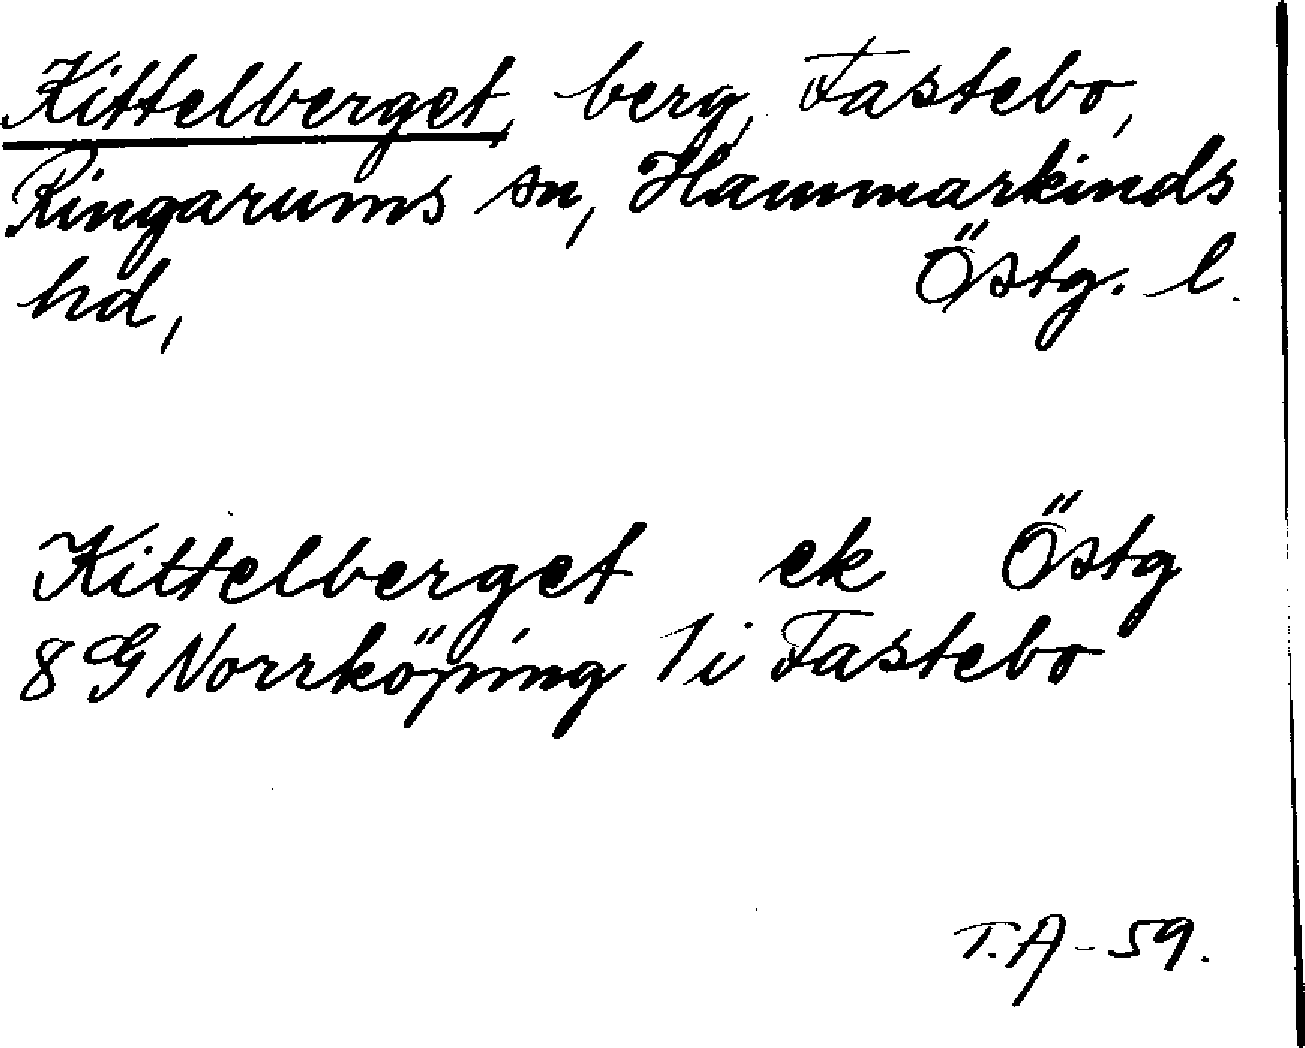 Kittelberget, berg, Fastebo,
Ringarums sn, Hammarkinds
hd, Östg. l.
Kittelberget ek Östg
8G Norrköping 1i Fastebo
T.A-59.